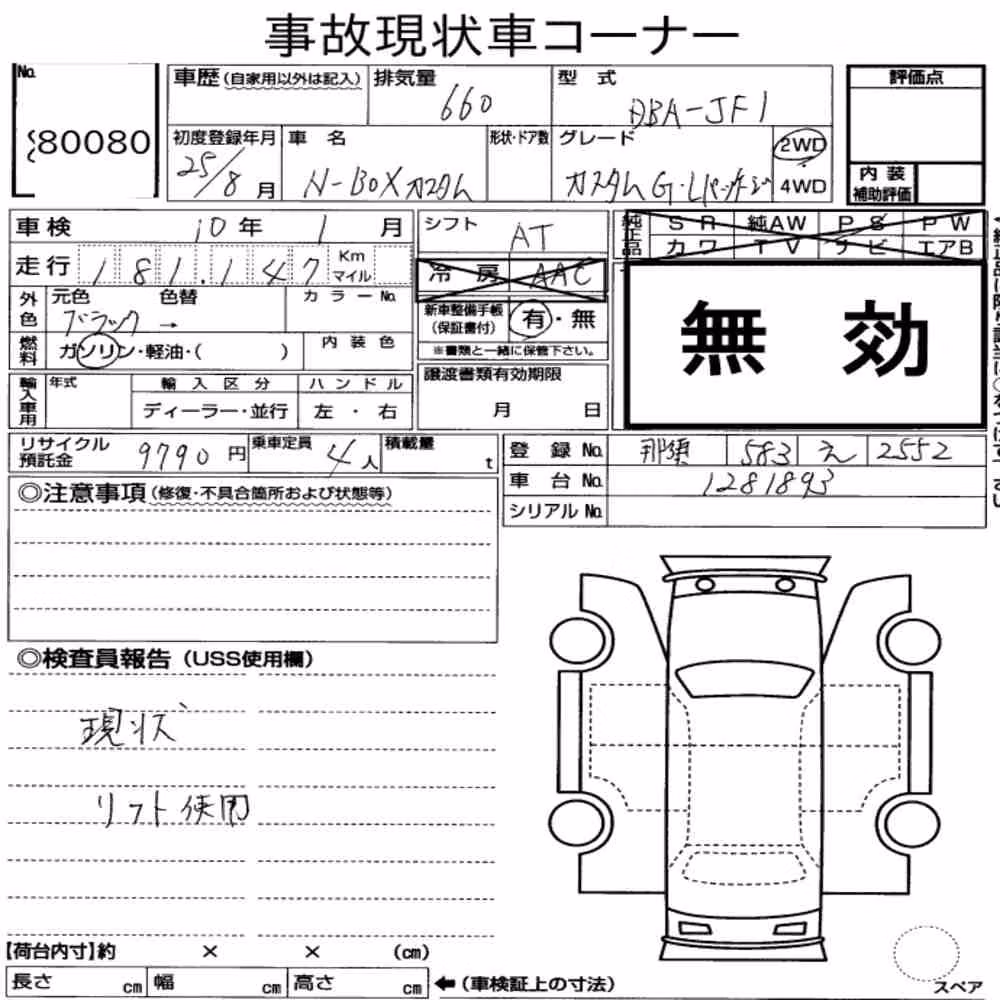 事故現状車コーナー
No.
80080
車歴 (自家用以外は記入)
排気量
660
型式
DBA-JF1
評価点
初度登録年月
25/8月
車名
N-BOXカスタム
形状・ドア数
グレード
カスタムG・Lパッケージ
2WD
4WD
内装
補助評価
車検 10年 1月
シフト
AT
純正品
SR 純AW PS PW
カワ TV ナビ エアB
走行 181.147 Km マイル
冷房 AAC
外色
元色 色替
ブラック →
カラーNo.
新車整備手帳
(保証書付)
有・無
※書類と一緒に保管下さい。
無効
燃料
ガソリン・軽油・( )
内装色
輸入車用
年式
輸入区分
ディーラー・並行
ハンドル
左・右
譲渡書類有効期限
月 日
リサイクル
預託金
9790円
乗車定員
4人
積載量
t
登録No. 那須 583 え 2552
車台No. 1281893
シリアルNo.
◎注意事項 (修復・不具合箇所および状態等)
◎検査員報告 (USS使用欄)
現状
リフト使用
【荷台内寸】約 × × (cm)
長さ cm 幅 cm 高さ cm ←(車検証上の寸法)
スペア